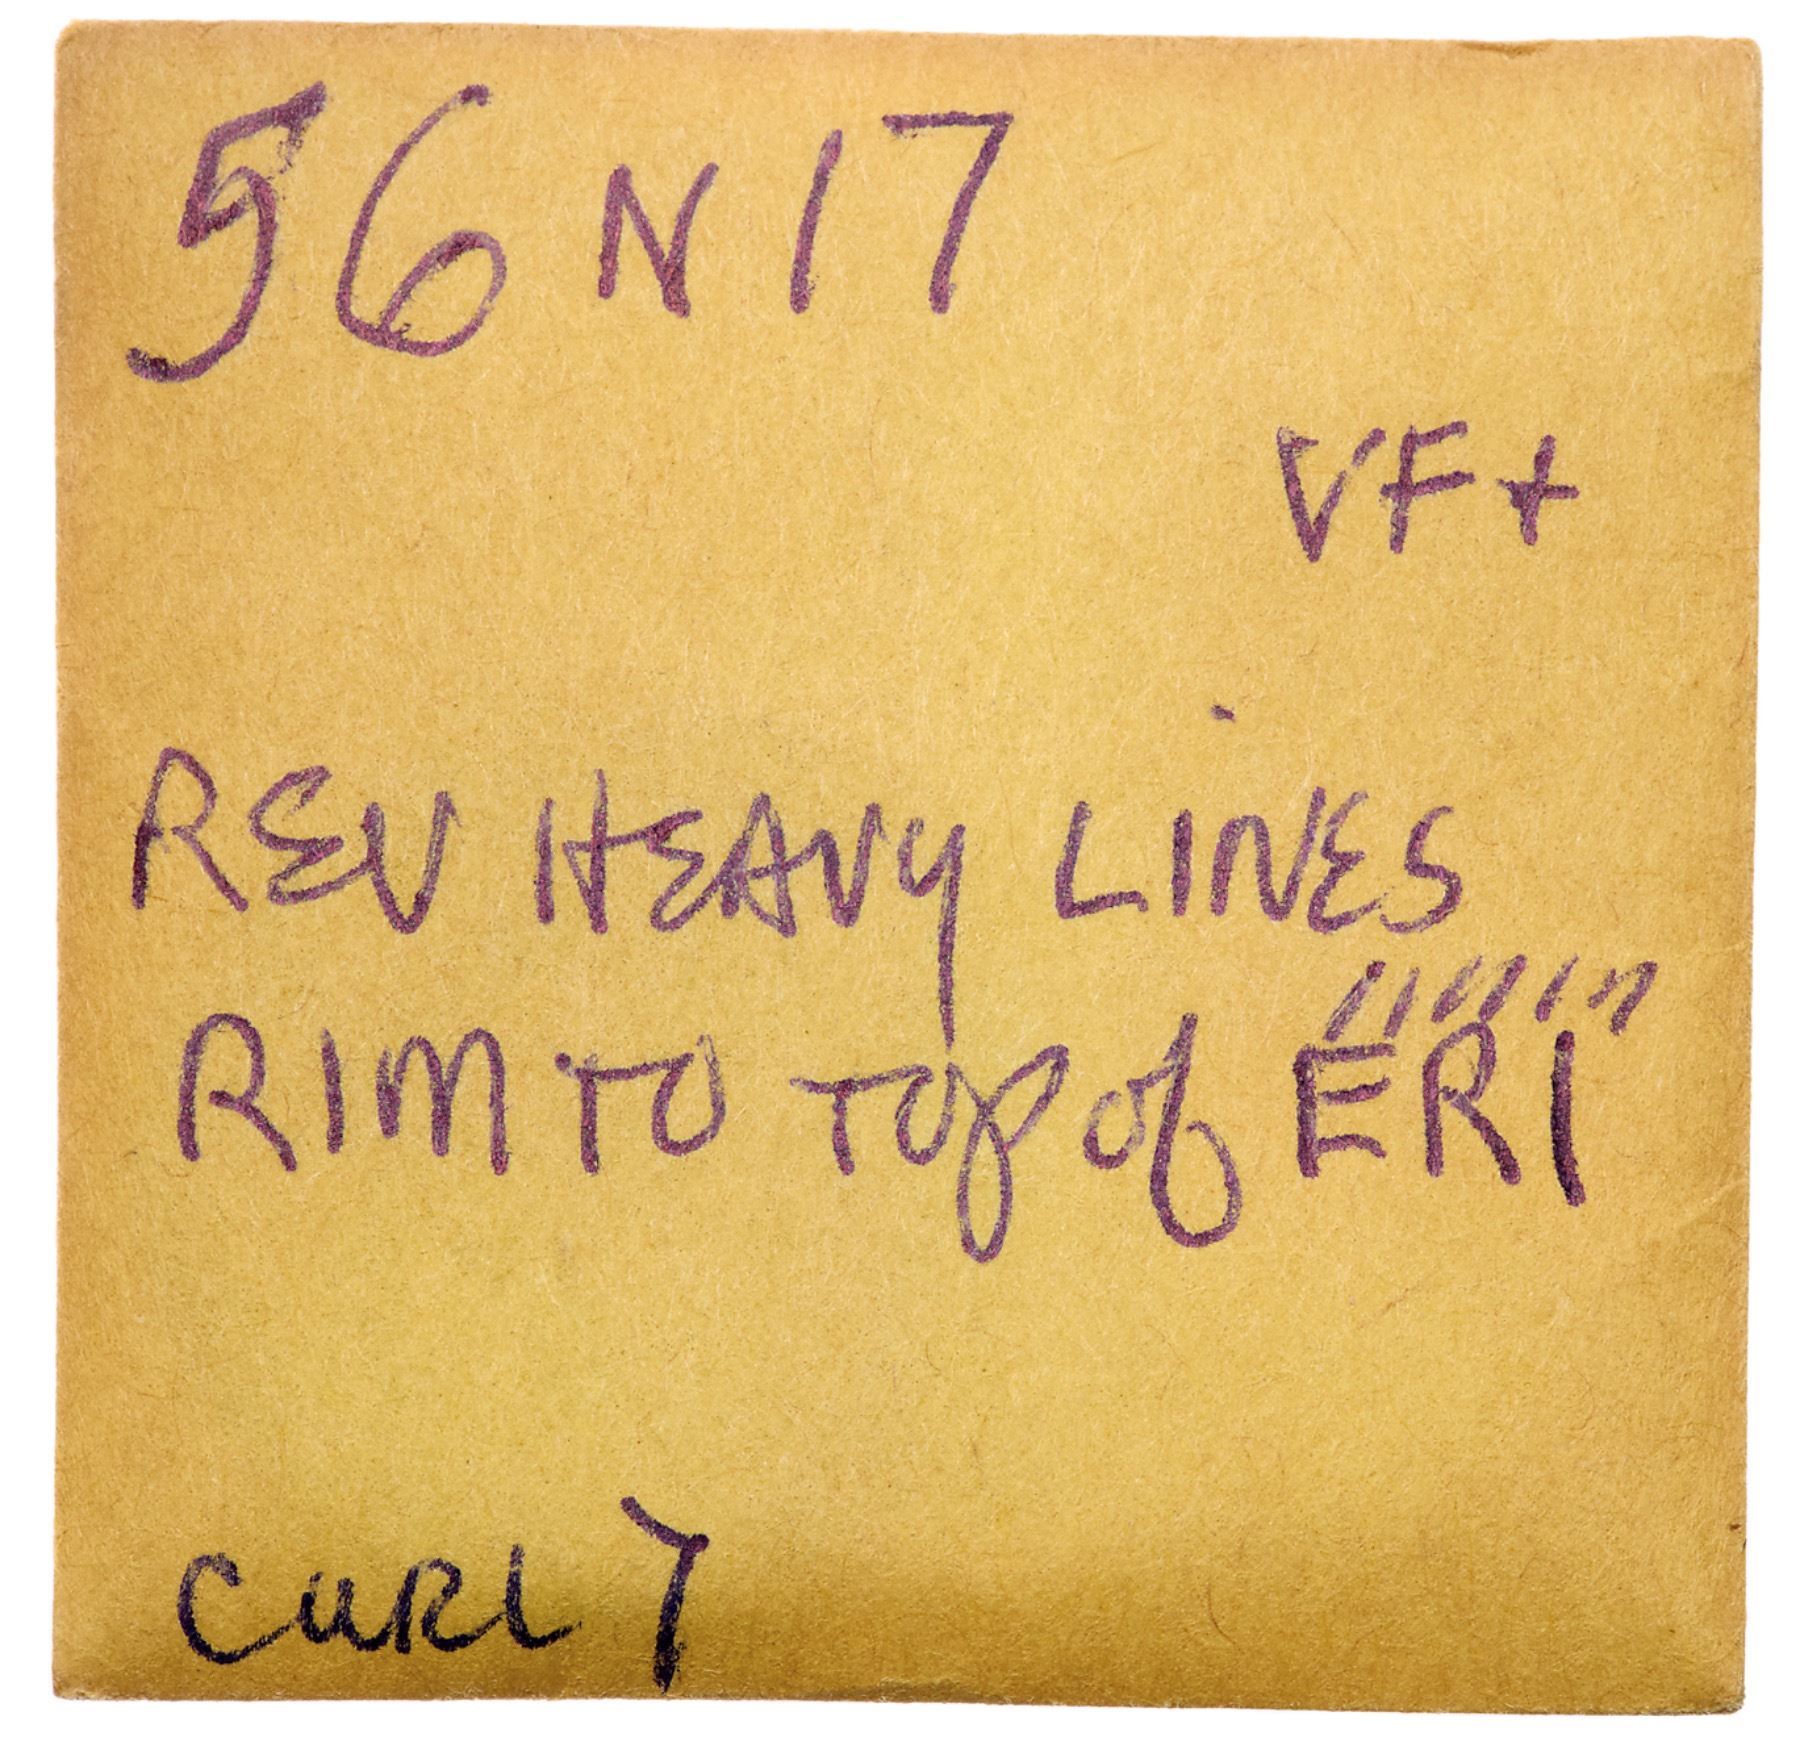 56 N 17
VF+
REV HEAVY LINES
RIM TO TOP of ERI
CURL 7